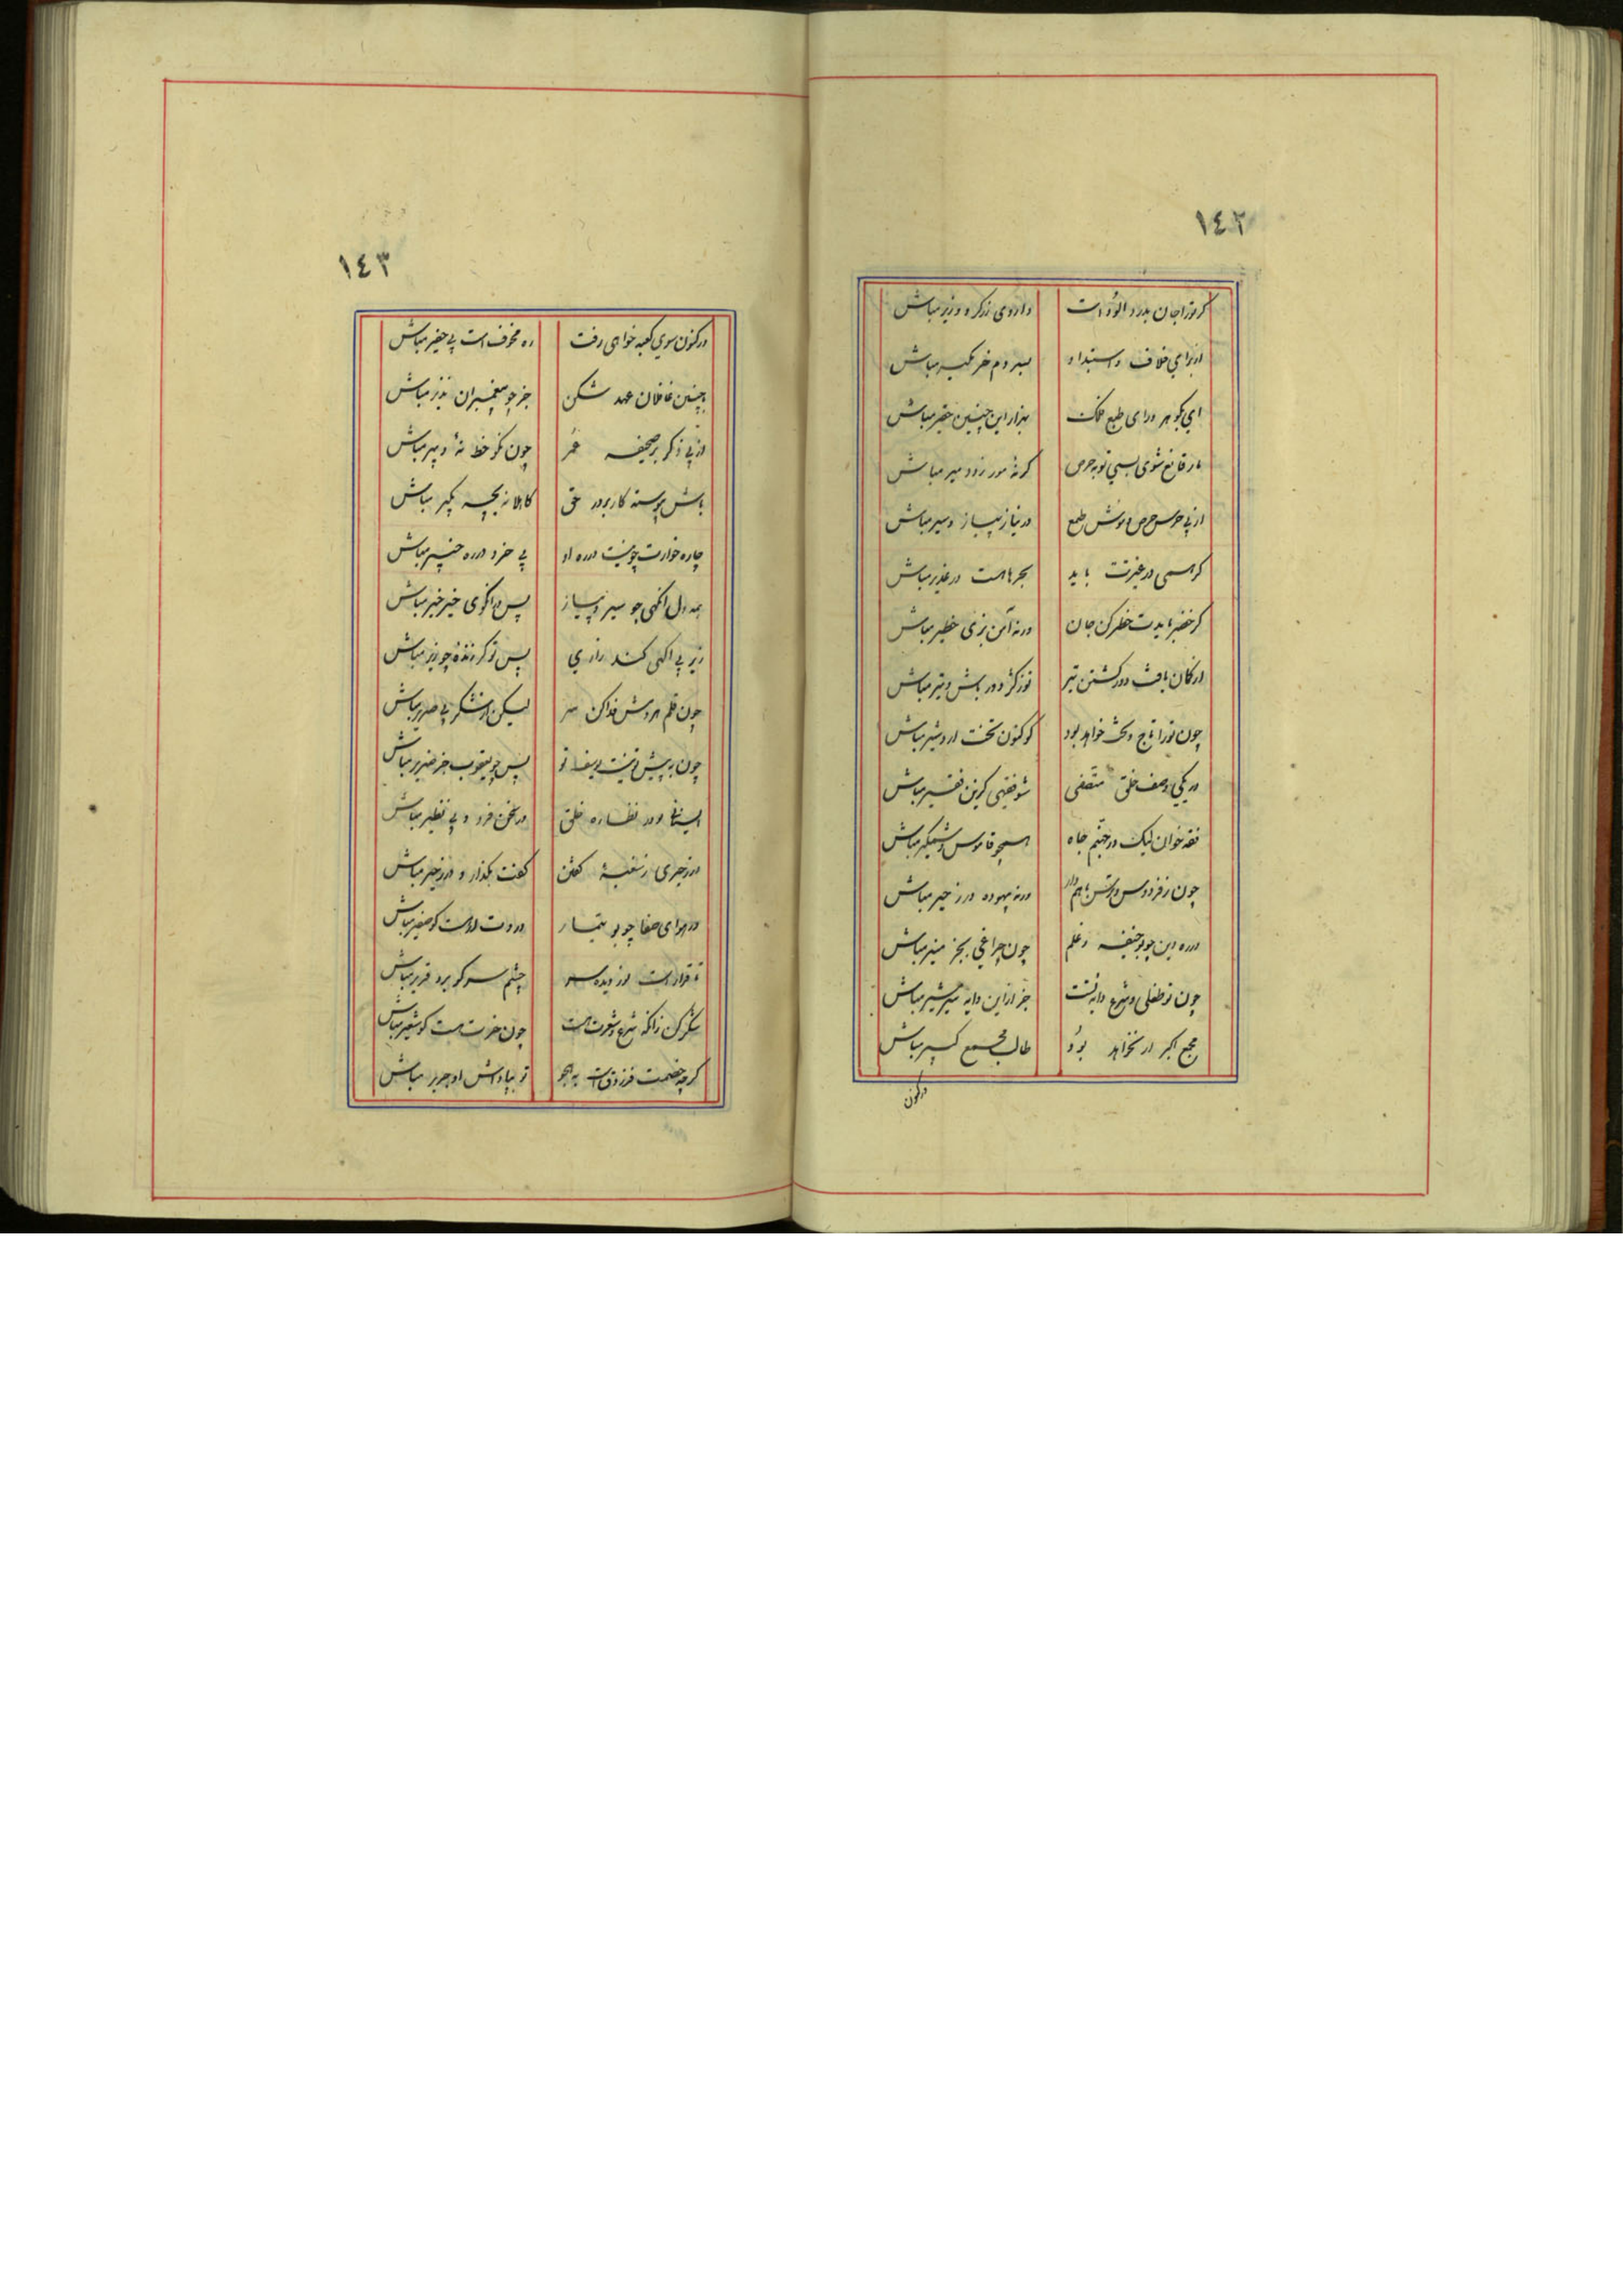 ١٤٢
کر ترا جان بدرد آلوده است داروی زرکر و وزیر مباش
از برای خلاف و استبداد بسر و دم خر مکیر مباش
ای بکوهر ورای طبع فلک بهزار این چنین حقیر مباش
مار قانع شوی بسی تو بحرص کر نه مور زود میر مباش
از پی حرص و موش طمع در نیاز پیاز و سیر مباش
کر همی در غیرتت باید بحر ها هست در غدیر مباش
کر خضر بایدت خطر کن جان ورنه آمن بزی خطیر مباش
از کمان یافت دور کشتن تیر تو ز کژ دور باش و تیر مباش
چون ترا تاج و تخت خواهد بود کو کنون تخت اردشیر مباش
در یکی وصف خلق متفقی شو فقهی کزین فقیر مباش
فقه خوان لیک در جهنم جاه همچو قابوس وشمکیر مباش
چون ز فردوس ترس باهم دار ورنه بیهوده در زحیر مباش
در ره دین چو بو حنیفه ز علم چون چراغی بجز منیر مباش
چون تو طفلی و شرع دایه تست جز از این دایه سیر شیر مباش
مجمع اکبر ار نخواهد بود طالب مجمع کبیر مباش
ورکنون
١٤٣
ورکنون سوی کعبه خواهی رفت ره مخوف است بی خفیر مباش
با چنین غافلان عهد شکن جز چو پیغمبران نذیر مباش
از پی ذکر بر صحیفه عمر چون نکو خط نهٔ دبیر مباش
باش پیوسته کار برور حق کاهلانه بخیر مباش
چاره خوارت چو نیست در ره او بی خرد در ره مباش
همه دل آنکهی چو سیر و پیاز پس درآکوی خیر خیر مباش
زیر بی آکهی کند زاری پس تو کر زندهٔ چو زیر مباش
چون قلم هر دمش فدا کن سر لیکن از شکر بی صریر مباش
چون به پیش تو نیست یوسف تو پس چو یعقوب جز ضریر مباش
ایستاده در نظاره خلق در سخن فرد و بی نظیر مباش
در زحیری ز کفتن کفت بکذار و در زحیر مباش
در هوای صفا چو بو تیمار دردت است کو صفیر مباش
تا قرار است نور دیده سر چشم سر کو برد قریر مباش
شکر کن زانکه شرع و شعرت هست چون خرت هست کو شعیر مباش
کرچه خصمت فرزدق است به هجو تو بپاداش او جریر مباش